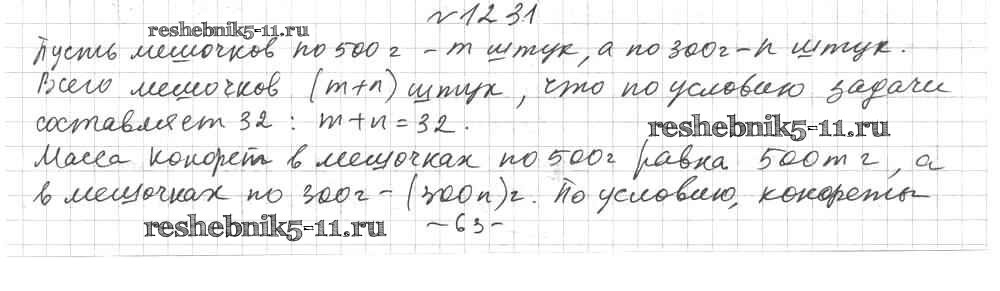 №1231
reshebnik5-11.ru
Пусть мешочков по 500 г - m штук, а по 300г - n штук.
Всего мешочков (m+n) штук, что по условию задачи
составляет 32 : m+n=32.
reshebnik5-11.ru
Масса конфет в мешочках по 500г равна 500m г, а
в мешочках по 300г - (300n)г. По условию, конфеты
reshebnik5-11.ru
-63-